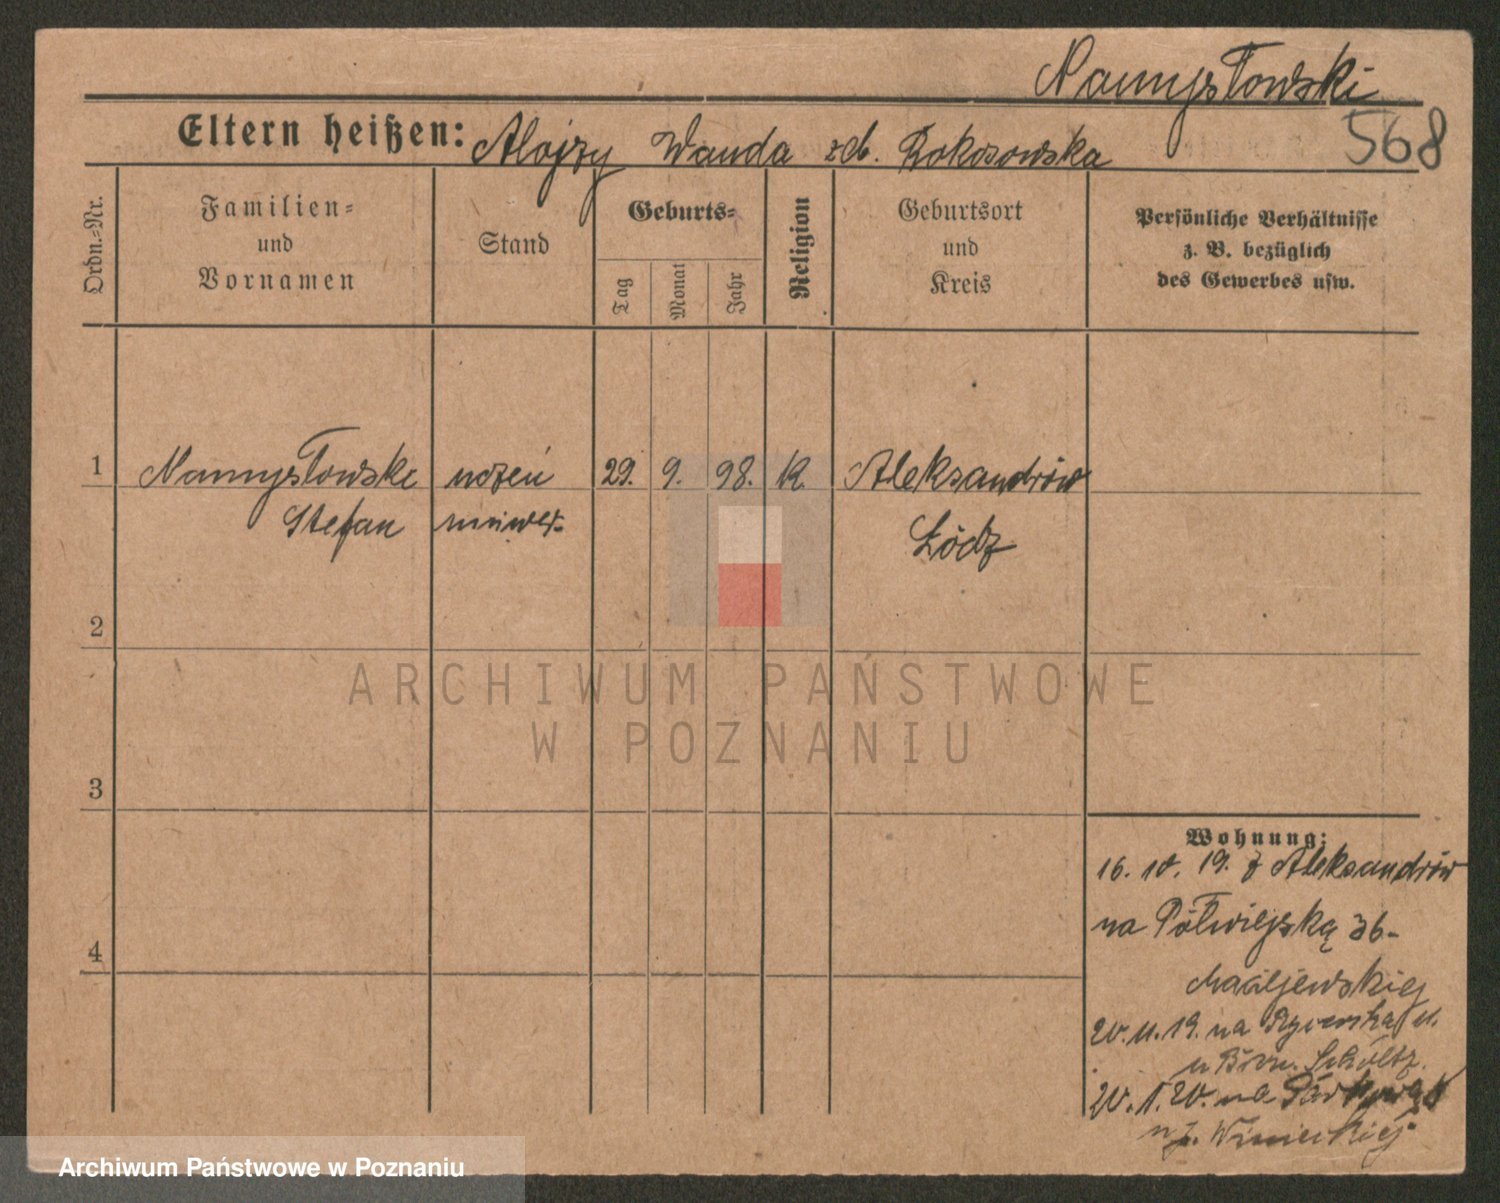 Namysłowski
568
Eltern heißen: Alojzy Wanda zd. Rokosowska
Ordn.-Nr.
Familien- und Vornamen
Stand
Geburts-
Tag
Monat
Jahr
Religion
Geburtsort und Kreis
Persönliche Verhältnisse
z. B. bezüglich
des Gewerbes usw.
1 Namysłowski uczeń 29. 9. 98. K. Aleksandrów
Stefan uniwer. Łódz
2
3
4
Wohnung:
16. 10. 19. z Aleksandrów
na Półwiejską 36-
Maciejewskiej
20. 11. 19. na 11.
u Scholtz.
20. 1. 20. na
u
ARCHIWUM PAŃSTWOWE
W POZNANIU
Archiwum Państwowe w Poznaniu